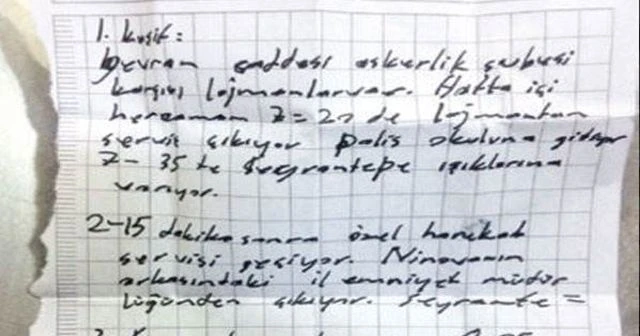 1. keşif:
Gevran caddesi askerlik şubesi
karşısı lojmanlar var. Hafta içi
herzaman 7=20 de lojmandan
servis çıkıyor polis okuluna gidiyor
7-35 te Seyrantepe ışıklarına
varıyor.
2-15 dakika sonra özel harekat
servisi geçiyor. Ninovanın
arkasındaki il emniyet müdür
lüğünden çıkıyor. Seyrante =